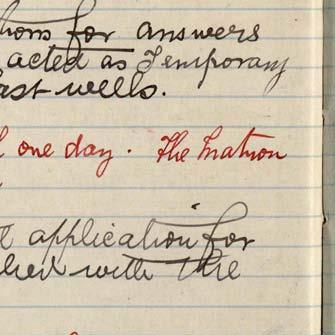 for answers
acted as Temporary
ast wells.
one day. The Matron
application for
with the